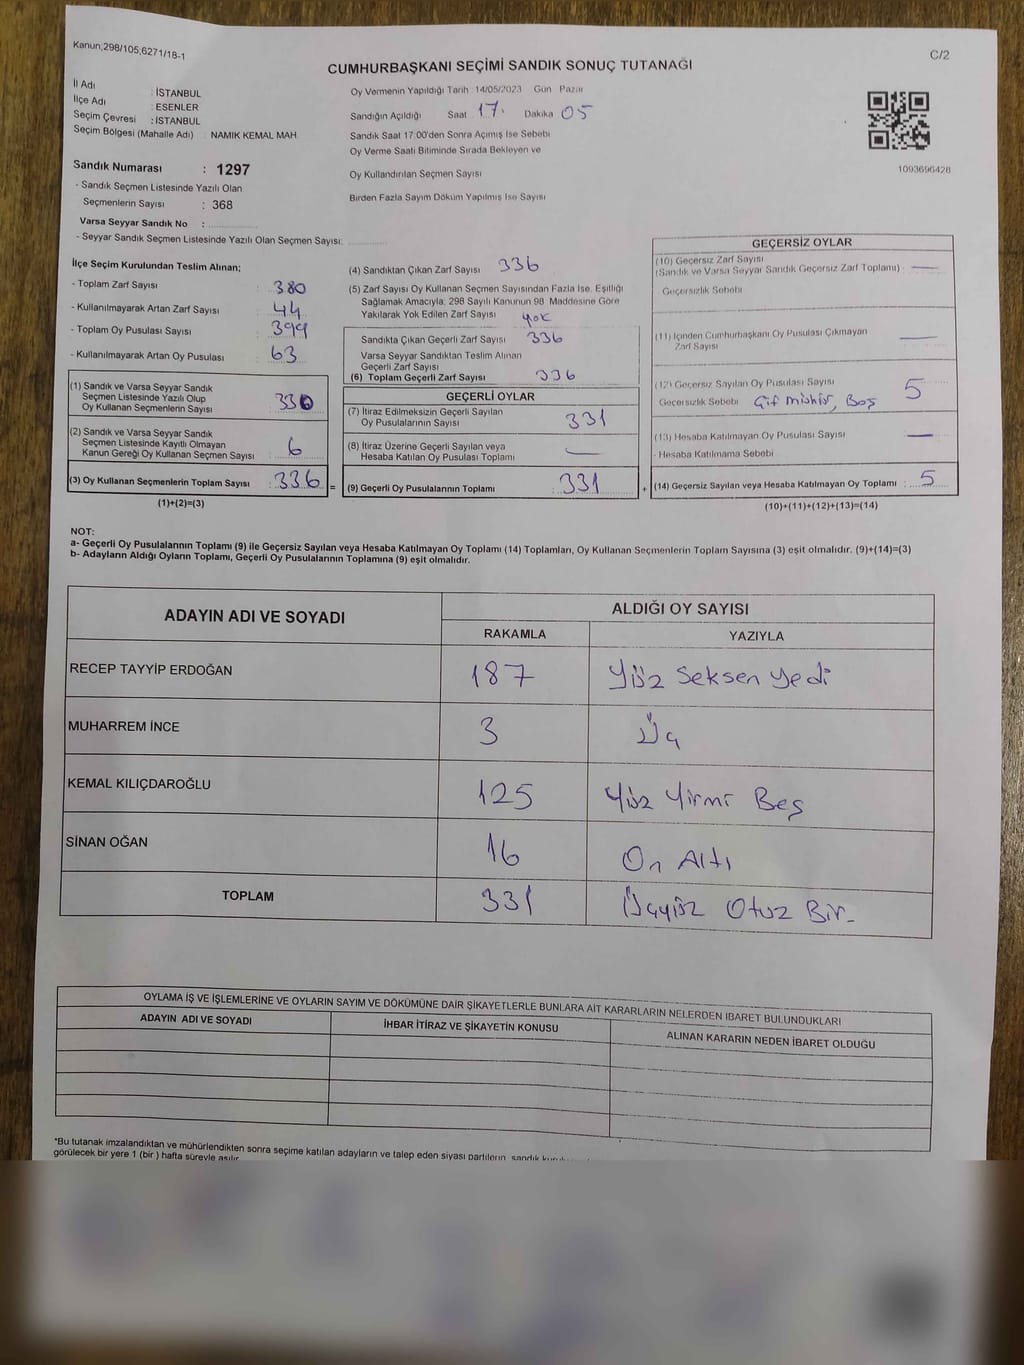 Kanun;298/105,6271/18-1
C/2
CUMHURBAŞKANI SEÇİMİ SANDIK SONUÇ TUTANAĞI
İl Adı : İSTANBUL
İlçe Adı : ESENLER
Seçim Çevresi : İSTANBUL
Seçim Bölgesi (Mahalle Adı) : NAMIK KEMAL MAH
Sandık Numarası : 1297
- Sandık Seçmen Listesinde Yazılı Olan
Seçmenlerin Sayısı : 368
Varsa Seyyar Sandık No :
- Seyyar Sandık Seçmen Listesinde Yazılı Olan Seçmen Sayısı:
Oy Vermenin Yapıldığı Tarih : 14/05/2023 Gün Pazar
Sandığın Açıldığı Saat 17. Dakika 05
Sandık Saat 17:00'den Sonra Açımış İse Sebebi
Oy Verme Saati Bitiminde Sırada Bekleyen ve
Oy Kullandırılan Seçmen Sayısı
Birden Fazla Sayım Döküm Yapılmış İse Sayısı
1093696428
İlçe Seçim Kurulundan Teslim Alınan;
- Toplam Zarf Sayısı : 380
- Kullanılmayarak Artan Zarf Sayısı : 44
- Toplam Oy Pusulası Sayısı : 399
- Kullanılmayarak Artan Oy Pusulası : 63
(1) Sandık ve Varsa Seyyar Sandık
Seçmen Listesinde Yazılı Olup
Oy Kullanan Seçmenlerin Sayısı : 330
(2) Sandık ve Varsa Seyyar Sandık
Seçmen Listesinde Kayıtlı Olmayan
Kanun Gereği Oy Kullanan Seçmen Sayısı : 6
(3) Oy Kullanan Seçmenlerin Toplam Sayısı : 336
(1)+(2)=(3)
=
(4) Sandıktan Çıkan Zarf Sayısı 336
(5) Zarf Sayısı Oy Kullanan Seçmen Sayısından Fazla İse, Eşitliği
Sağlamak Amacıyla, 298 Sayılı Kanunun 98. Maddesine Göre
Yakılarak Yok Edilen Zarf Sayısı yok
Sandıkta Çıkan Geçerli Zarf Sayısı 336
Varsa Seyyar Sandıktan Teslim Alınan
Geçerli Zarf Sayısı
(6) Toplam Geçerli Zarf Sayısı 336
GEÇERLİ OYLAR
(7) İtiraz Edilmeksizin Geçerli Sayılan
Oy Pusulalarının Sayısı : 331
(8) İtiraz Üzerine Geçerli Sayılan veya
Hesaba Katılan Oy Pusulası Toplamı : —
(9) Geçerli Oy Pusulalarının Toplamı : 331
+
GEÇERSİZ OYLAR
(10) Geçersiz Zarf Sayısı
(Sandık ve Varsa Seyyar Sandık Geçersiz Zarf Toplamı) : —
Geçersizlik Sebebi
(11) İçinden Cumhurbaşkanı Oy Pusulası Çıkmayan
Zarf Sayısı —
(12) Geçersiz Sayılan Oy Pusulası Sayısı 5
Geçersizlik Sebebi Çift Mühür, Boş
(13) Hesaba Katılmayan Oy Pusulası Sayısı —
- Hesaba Katılmama Sebebi
(14) Geçersiz Sayılan veya Hesaba Katılmayan Oy Toplamı : 5
(10)+(11)+(12)+(13)=(14)
NOT:
a- Geçerli Oy Pusulalarının Toplamı (9) ile Geçersiz Sayılan veya Hesaba Katılmayan Oy Toplamı (14) Toplamları, Oy Kullanan Seçmenlerin Toplam Sayısına (3) eşit olmalıdır. (9)+(14)=(3)
b- Adayların Aldığı Oyların Toplamı, Geçerli Oy Pusulalarının Toplamına (9) eşit olmalıdır.
ADAYIN ADI VE SOYADI
ALDIĞI OY SAYISI
RAKAMLA YAZIYLA
RECEP TAYYİP ERDOĞAN 187 Yüz Seksen Yedi
MUHARREM İNCE 3 Üç
KEMAL KILIÇDAROĞLU 125 Yüz Yirmi Beş
SİNAN OĞAN 16 On Altı
TOPLAM 331 Üçyüz Otuz Bir-
OYLAMA İŞ VE İŞLEMLERİNE VE OYLARIN SAYIM VE DÖKÜMÜNE DAİR ŞİKAYETLERLE BUNLARA AİT KARARLARIN NELERDEN İBARET BULUNDUKLARI
ADAYIN ADI VE SOYADI İHBAR İTİRAZ VE ŞİKAYETİN KONUSU ALINAN KARARIN NEDEN İBARET OLDUĞU
*Bu tutanak imzalandıktan ve mühürlendikten sonra seçime katılan adayların ve talep eden siyasi partilerin, sandık
görülecek bir yere 1 (bir ) hafta süreyle asılır